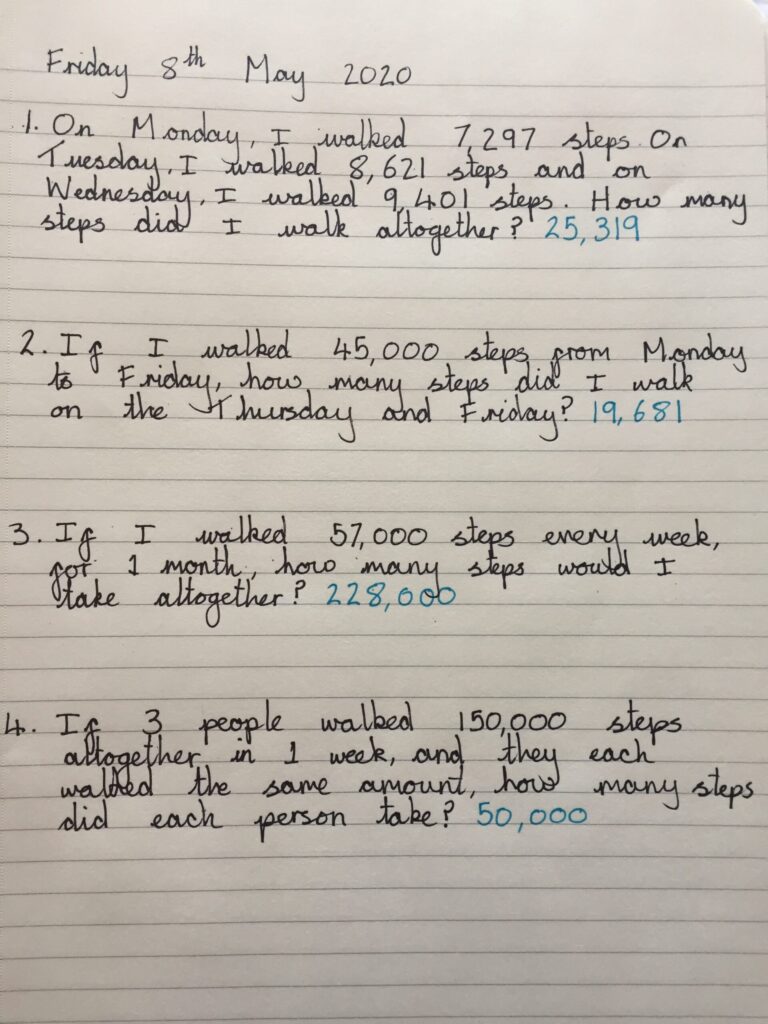 Friday 8th May 2020
1. On Monday, I walked 7,297 steps. On
Tuesday, I walked 8,621 steps and on
Wednesday, I walked 9,401 steps. How many
steps did I walk altogether? 25,319
2. If I walked 45,000 steps from Monday
to Friday, how many steps did I walk
on the Thursday and Friday? 19,681
3. If I walked 57,000 steps every week,
for 1 month, how many steps would I
take altogether? 228,000
4. If 3 people walked 150,000 steps
altogether in 1 week, and they each
walked the same amount, how many steps
did each person take? 50,000